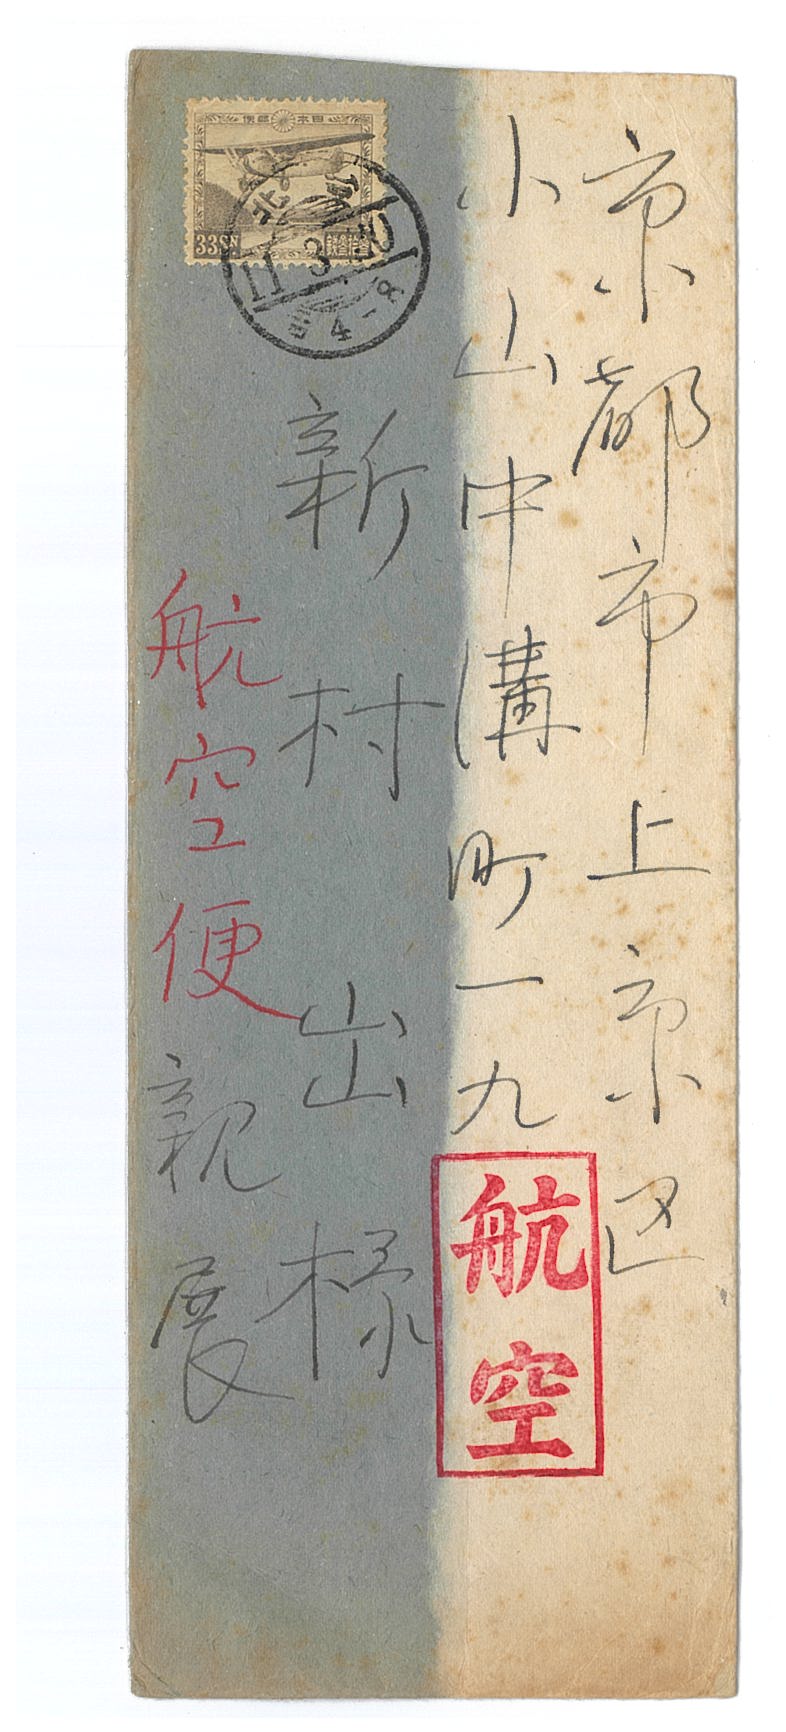 京都市上京区
小山中溝町一九
航空
新村出様
航空便
親展
日本郵便
33SN
台北
11.3.10
4-8